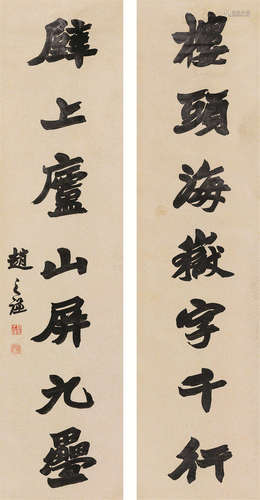 樓頭海嶽字千行
壁上廬山屏九疊
趙之謙